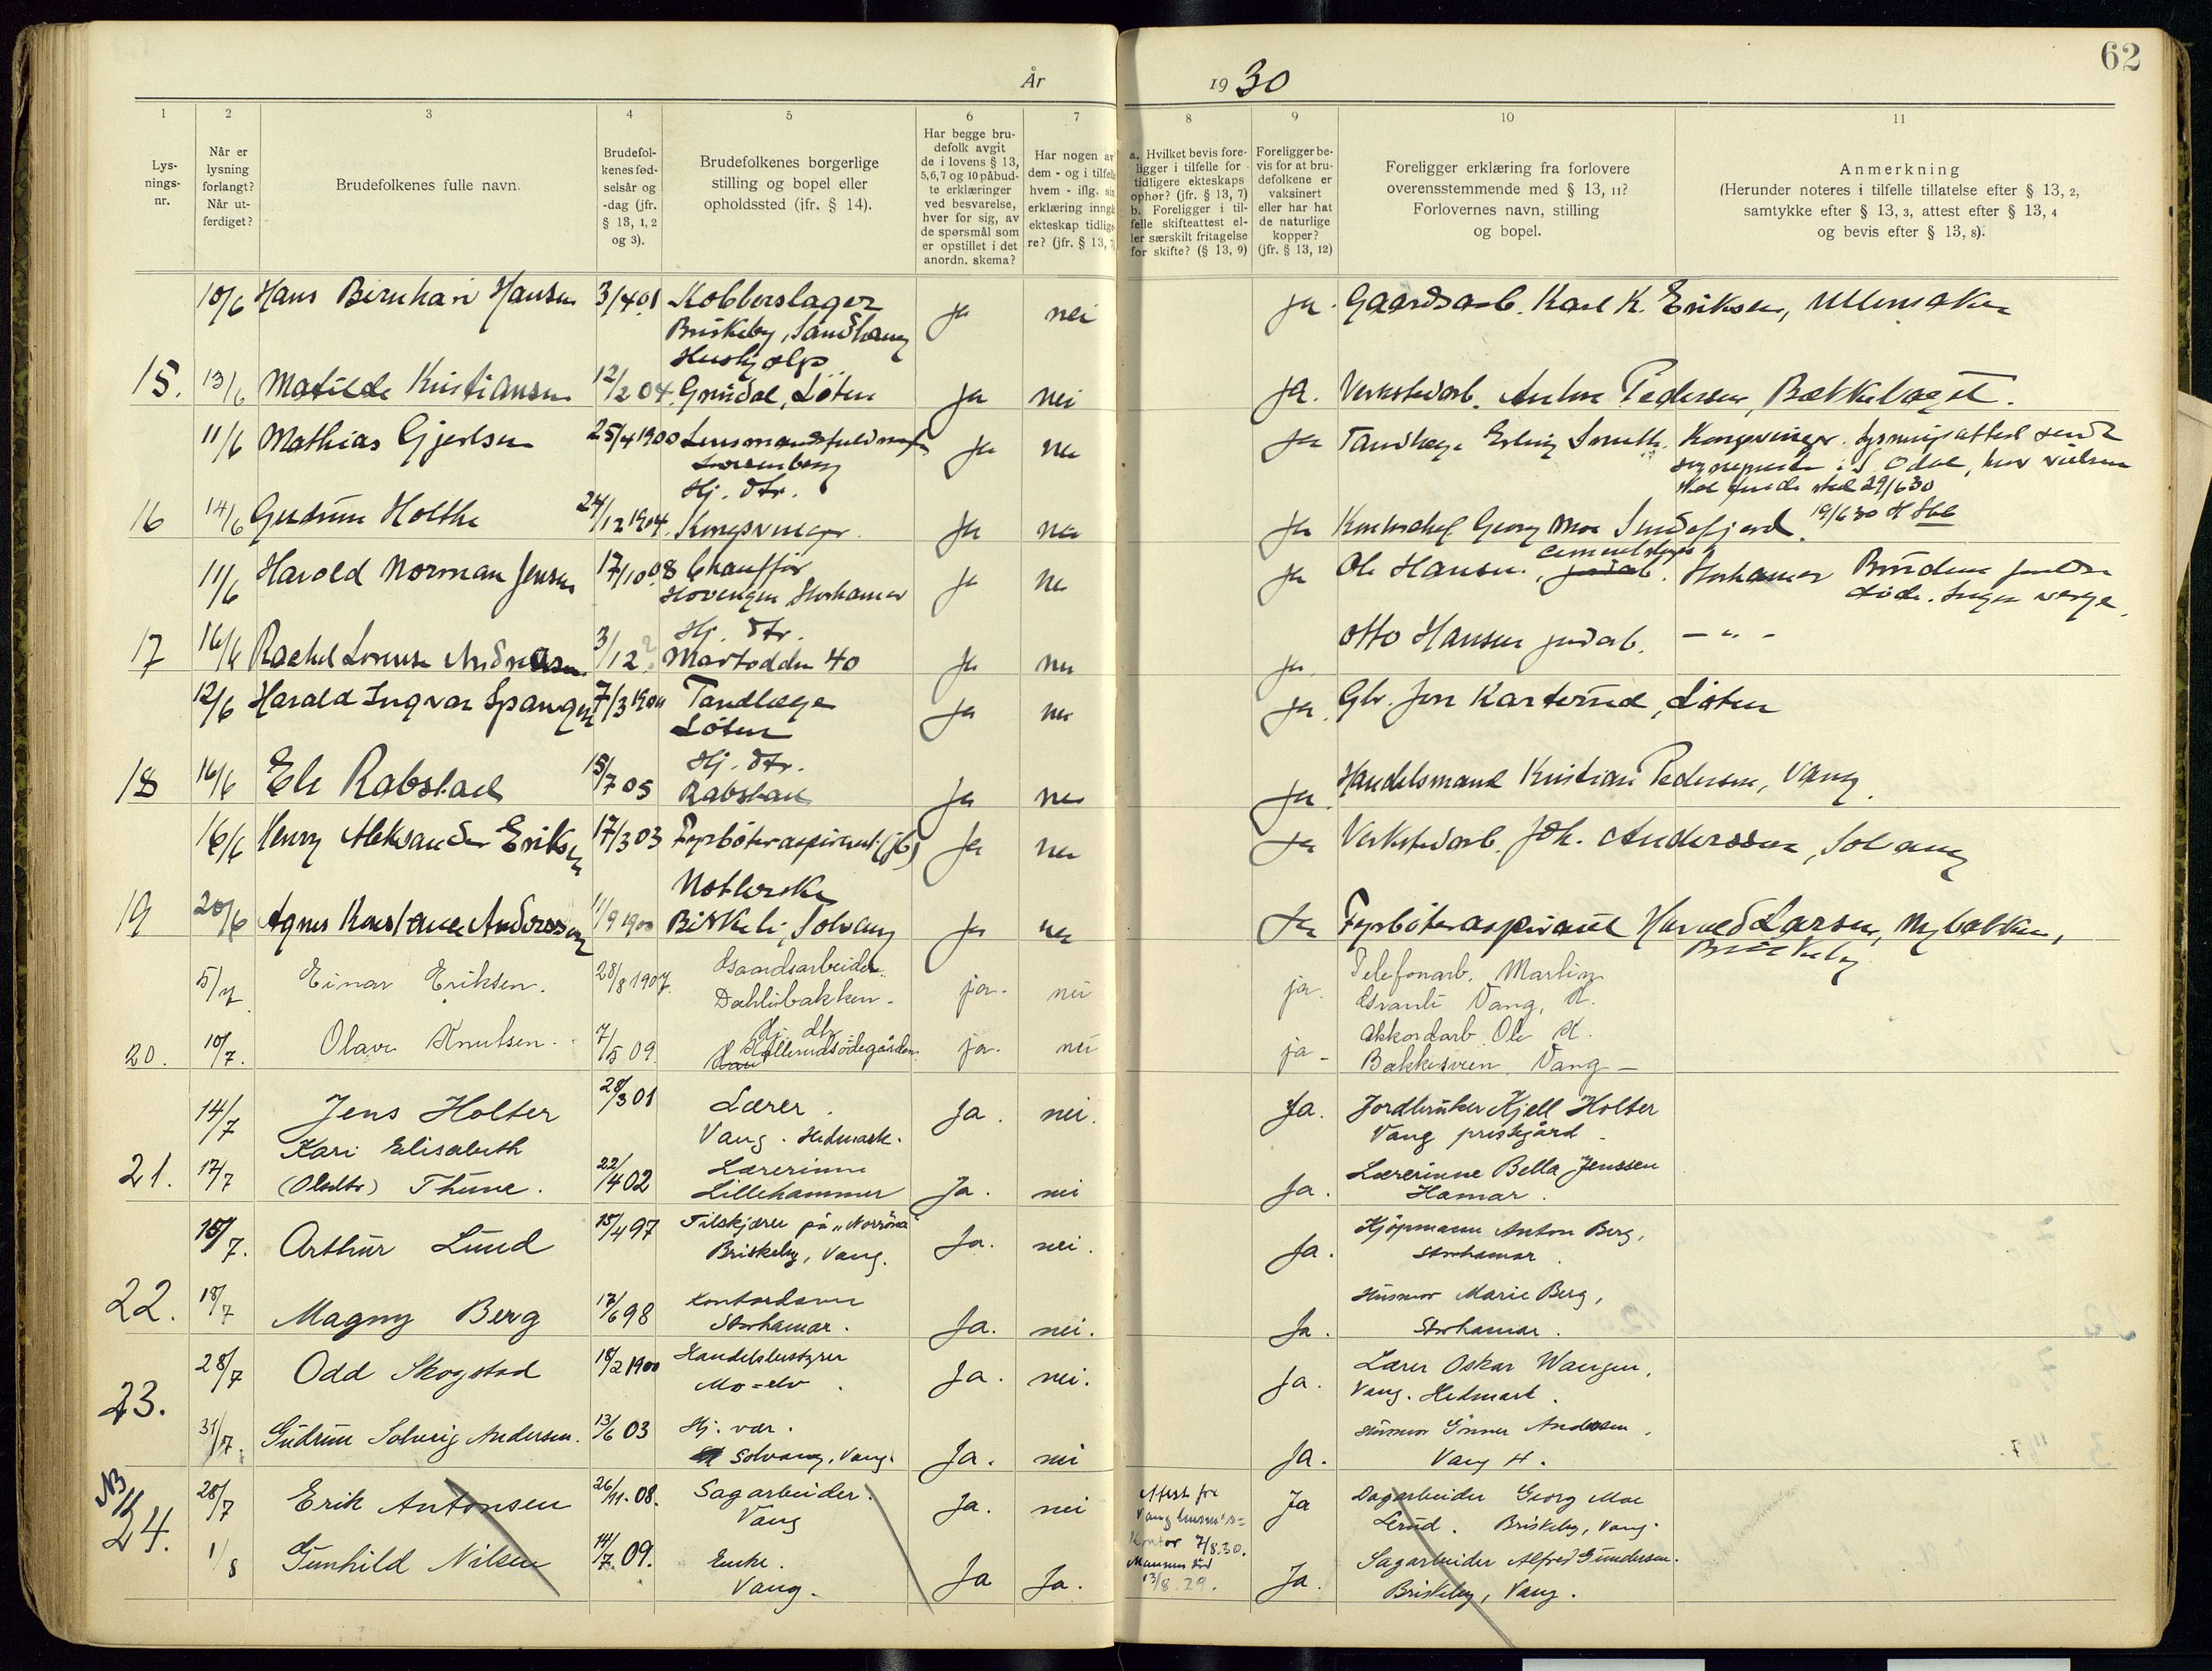 62
År 1930
1 2 3 4 5 6 7 8 9 10 11
Lysningsnr.
Når er lysning forlangt? Når utferdiget?
Brudefolkenes fulle navn.
Brudefolkenes fødselsår og -dag (jfr. § 13, 1, 2 og 3).
Brudefolkenes borgerlige stilling og bopel eller opholdssted (ifr. § 14).
Har begge brudefolk avgit de i lovens § 13, 5, 6, 7 og 10 påbudte erklæringer ved besvarelse, hver for sig, av de spørsmål som er opstillet i det anordn. skema?
Har nogen av dem - og i tilfelle hvem - iflg. sin erklæring inngå ekteskap tidligere? (jfr. § 13, 7
a. Hvilket bevis foreligger i tilfelle for tidligere ekteskaps ophør? (jfr. § 13, 7)
b. Foreligger i tilfelle skifteattest eller særskilt fritagelse for skifte? (§ 13, 9)
Foreligger bevis for at brudefolkene er vaksinert eller har hat de naturlige kopper? (jfr. § 13, 12)
Foreligger erklæring fra forlovere overensstemmende med § 13, 11? Forlovernes navn, stilling og bopel.
Anmerkning
(Herunder noteres i tilfelle tillatelse efter § 13, 2, samtykke efter § 13, 3, attest efter § 13, 4 og bevis efter § 13, 8).
10/6 Hans Bernhard Hansen 3/4 01 Kobberslager ja nei ja. Gaardsarb. Karl K. Eriksen, Ullensaker
Briskeby,
Hushjelp
15. 13/6 Matilde Kristiansen 12/2 04. Grindal, Løten ja nei ja. Verkstedarb. Anton Pedersen, Bækkelaget.
11/6 Mathias Gjerlsen 25/4 1900 Lensmandsfuldm ja nei ja Tandlæge Erling Smith. Kongsvinger. Lysningsattest sendt
sognepresten i S Odal, hvor vielsen
skal finde sted 29/6 30
Hj. dtr. 19/6 30
16 14/6 Gudrun Holthe 24/12 1904. Kongsvinger. ja nei ja Georg Moe
11/6 Harald Norman Jensen 17/10 08 Chauffør ja nei ja Ole Hansen, jordarb. Storhamar Brudens foreldre
Hovengen Storhamar døde. Ingen verge.
Hj. dtr.
17 16/6 Rachel Lovense Andreasen 3/12 ? Martodden 40 ja nei ja. Otto Hansen jordarb. — " —
12/6 Harald Ingvar Spangen 7/3 1904 Tandlæge ja nei ja. Gbr. Jon Karterud, Løten
Løten
Hj. dtr.
18 16/6 Eli Rabstad 15/7 05 Rabstad ja nei ja. Handelsmand Kristian Pedersen, Vang.
16/6 Henry Aleksander Eriksen 17/3 03 Fyrbøteraspirant (jb) ja nei ja Verkstedarb. Joh. Anderssen, Solvang
19 20/6 Agnes Konstance Anderssen 11/9 1900 Birkeli, Solvang ja nei ja Fyrbøteraspirant Harald Larsen, Nybakken,
Briskeby
5/7 Einar Eriksen. 28/8 1907. Gaardsarbeider ja. nei ja. Telefonarb. Martin
Dahlibakken. Granli Vang, H.
Hj. dtr.
20. 10/7. Olava Knutsen. 7/5 09. Hollerudsødegården ja. nei ja- Akkordarb. Ole K.
Bækkesveen. Vang —
14/7 Jens Holter 28/3 01 Lærer. Ja. nei. Ja. Jordbruker Kjell Holter
Vang. Hedmark. Vang prestegård.
Kari Elisabeth
21. 17/7 (Olsdtr) Thune. 22/4 02 Lærerinne Ja. nei Ja. Lærerinne Bella Jenssen
Lillehammer Hamar.
15/7. Arthur Lund 15/4 97 Tilskjærer på „Norröna" Ja. nei. Ja. Kjøpmann Anton Berg,
Briskeby, Vang. Storhamar.
22. 18/7 Magny Berg 17/6 98 Kontordame Ja. nei. Ja. Husmor Marie Berg,
Storhamar. Storhamar.
23. 28/7 Odd Skogstad 18/2 1900 Handelsbestyrer Ja. nei. Ja. Lærer Oskar Wangen,
Mo-elv. Vang. Hedmark.
31/7. Gudrun Solveig Andersen. 13/6 03 Hj. vær. Ja. nei Ja. Husmor Gunner Andersen,
Solvang, Vang. Vang H.
NB
24. 28/7 Erik Antonsen 26/11. 08. Sagarbeider. Ja. nei Attest fra Ja Dagarbeider Georg Moe
Vang Vang Lerud. Briskeby, Vang.
kontor 7/8.30.
1/8 Gunhild Nilsen 14/7. 09. Enke. Ja Ja. Mannen død Ja. Sagarbeider Alfred Gundersen.
Vang. 13/8.29. Briskeby, Vang.